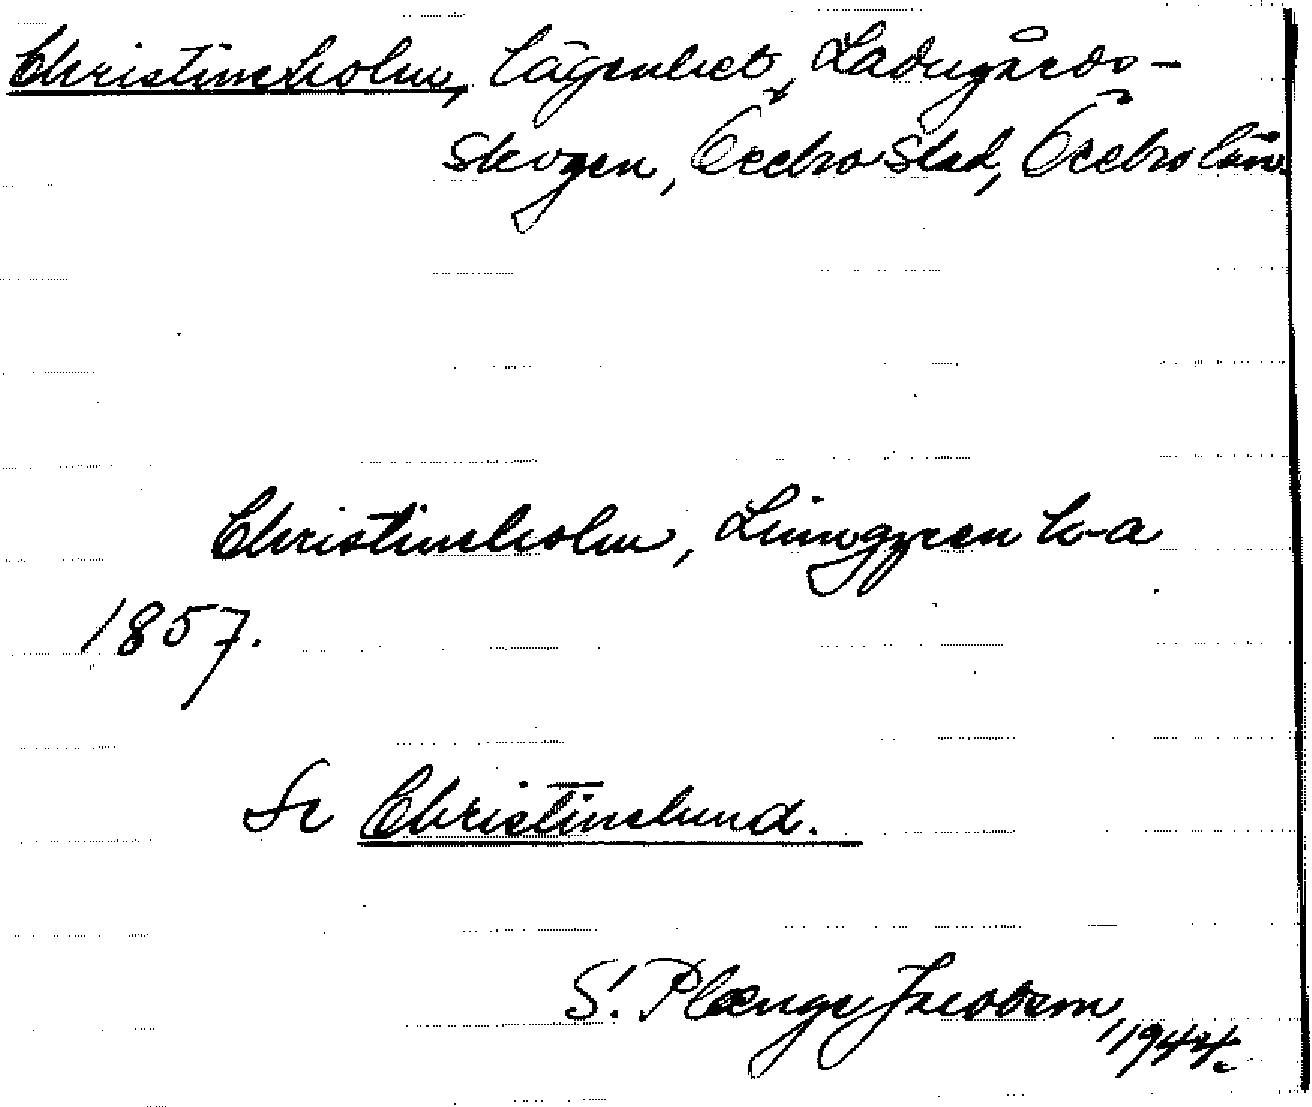 Christineholm, lägenhet, Ladugårds-
skogen, Örebro stad, Örebro län.
Christineholm, Ljunggren k-a
1857.
Se Christinelund.
S. Plænge Jacobson, 1944.